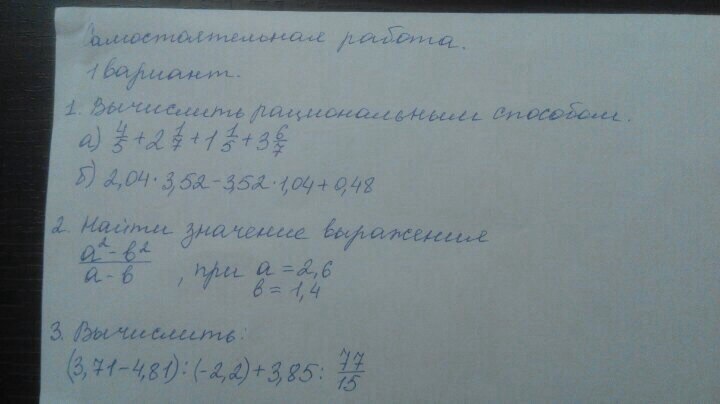 Самостоятельная работа.
1 вариант.
1. Вычислить рациональным способом.
а) 4/5 + 2 1/7 + 1 1/5 + 3 6/7
б) 2,04 · 3,52 - 3,52 · 1,04 + 0,48
2. Найти значение выражения
a² - b² / a - b , при a = 2,6
b = 1,4
3. Вычислить:
(3,71 - 4,81) : (-2,2) + 3,85 : 77/15